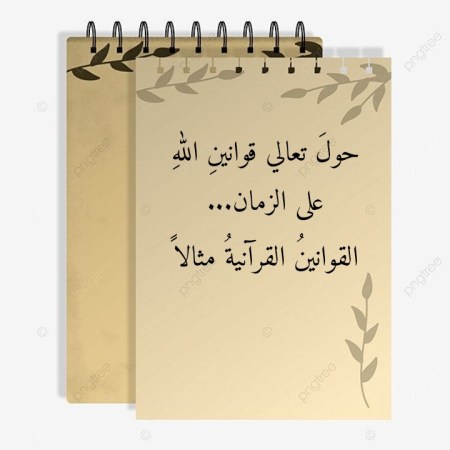 حولَ تعالي قوانينِ اللهِ
على الزمان...
القوانينُ القرآنيةُ مثالاً
pngtree